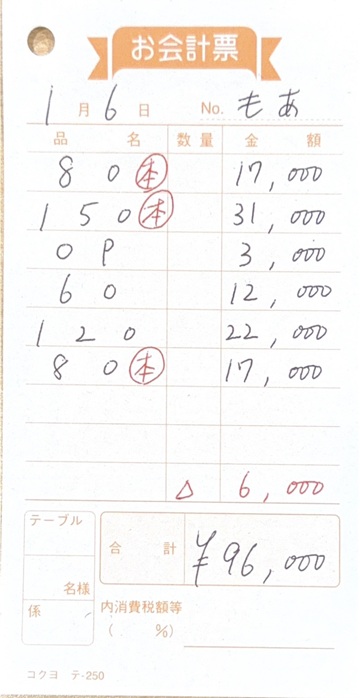 お会計票
1月6日 No. もあ
品名 数量 金額
80 本 17,000
150 本 31,000
OP 3,000
60 12,000
120 22,000
80 本 17,000
△ 6,000
テーブル
名様
合計 ¥96,000
係
内消費税額等
( %)
コクヨ テ-250